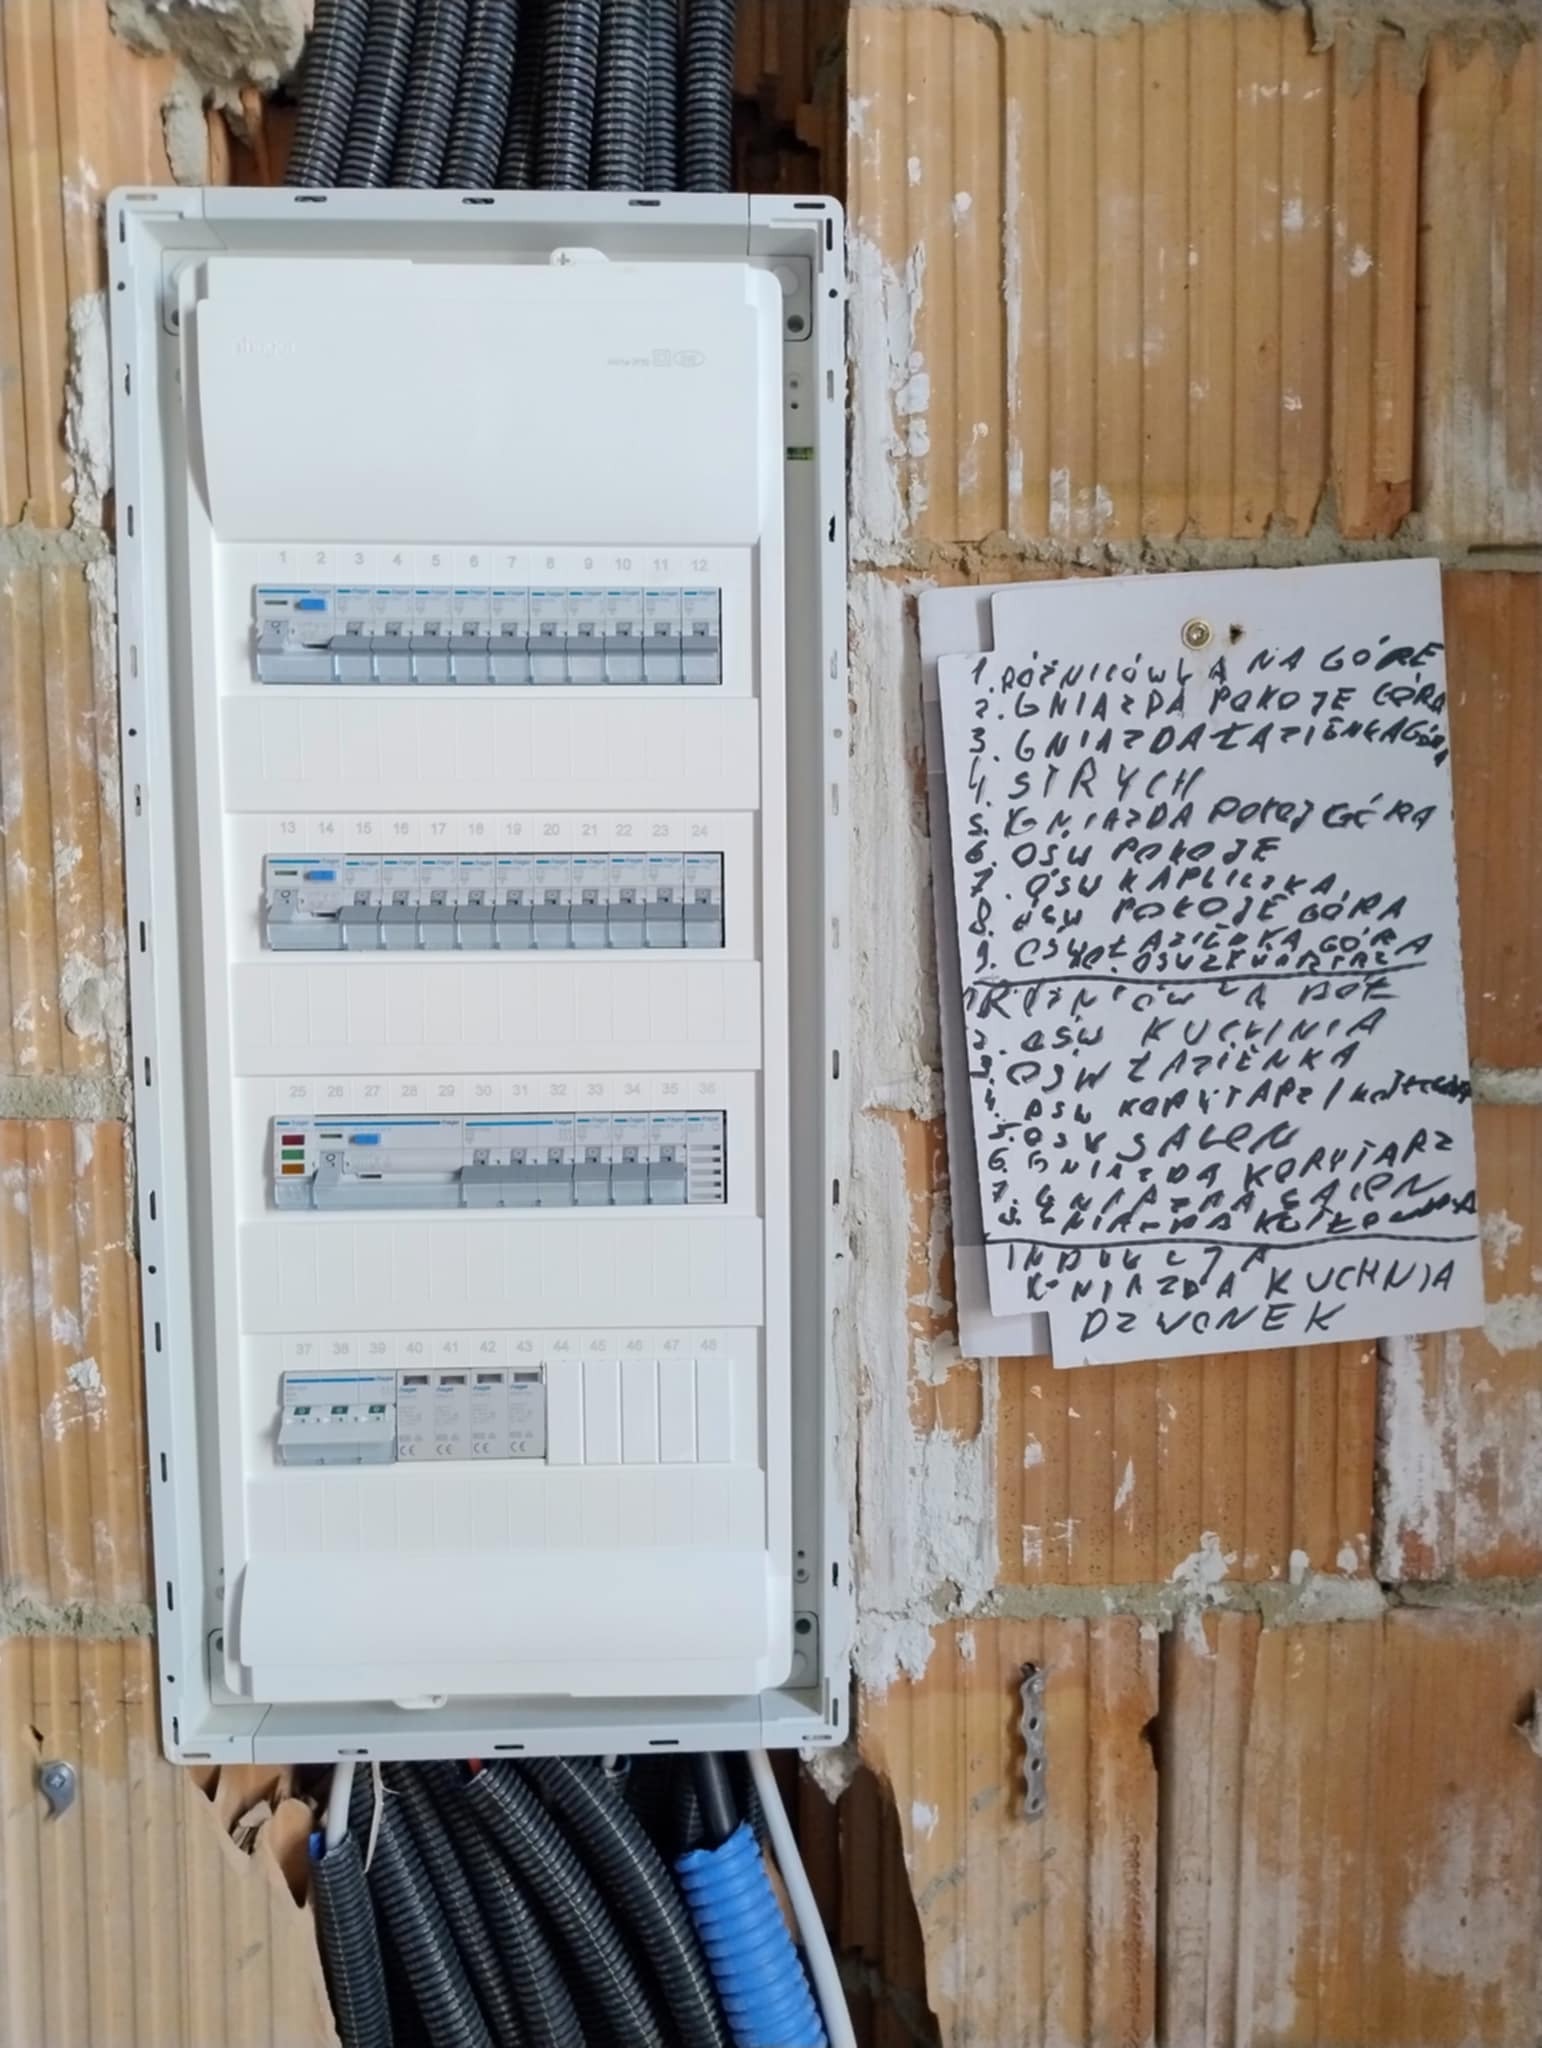 hager
1 2 3 4 5 6 7 8 9 10 11 12
hager
13 14 15 16 17 18 19 20 21 22 23 24
hager
25 26 27 28 29 30 31 32 33 34 35 36
hager
37 38 39 40 41 42 43 44 45 46 47 48
hager hager hager hager
CE CE CE CE
1. RÓŻNICÓWKA NA GÓRE
2. GNIAZDA POKOJE GÓRA
3. GNIAZDA ŁAZIENKA GÓRA
4. STRYCH
5. GNIAZDA POKOJ GÓRA
6. OŚW POKOJE
7. OŚW KAPLICZKA
8. OŚW POKOJE GÓRA
9. OŚW ŁAZIENKA GÓRA
10. OŚW
1 RÓŻNICÓWKA DÓŁ
2. OŚW KUCHNIA
3. OŚW ŁAZIENKA
4. OSW KORYTARZ /
5. OSW SALON
6. GNIAZDA KORYTARZ
7. GNIAZDA SALON
8. GNIAZDA
INDUKCJA
GNIAZDA KUCHNIA
DZWONEK